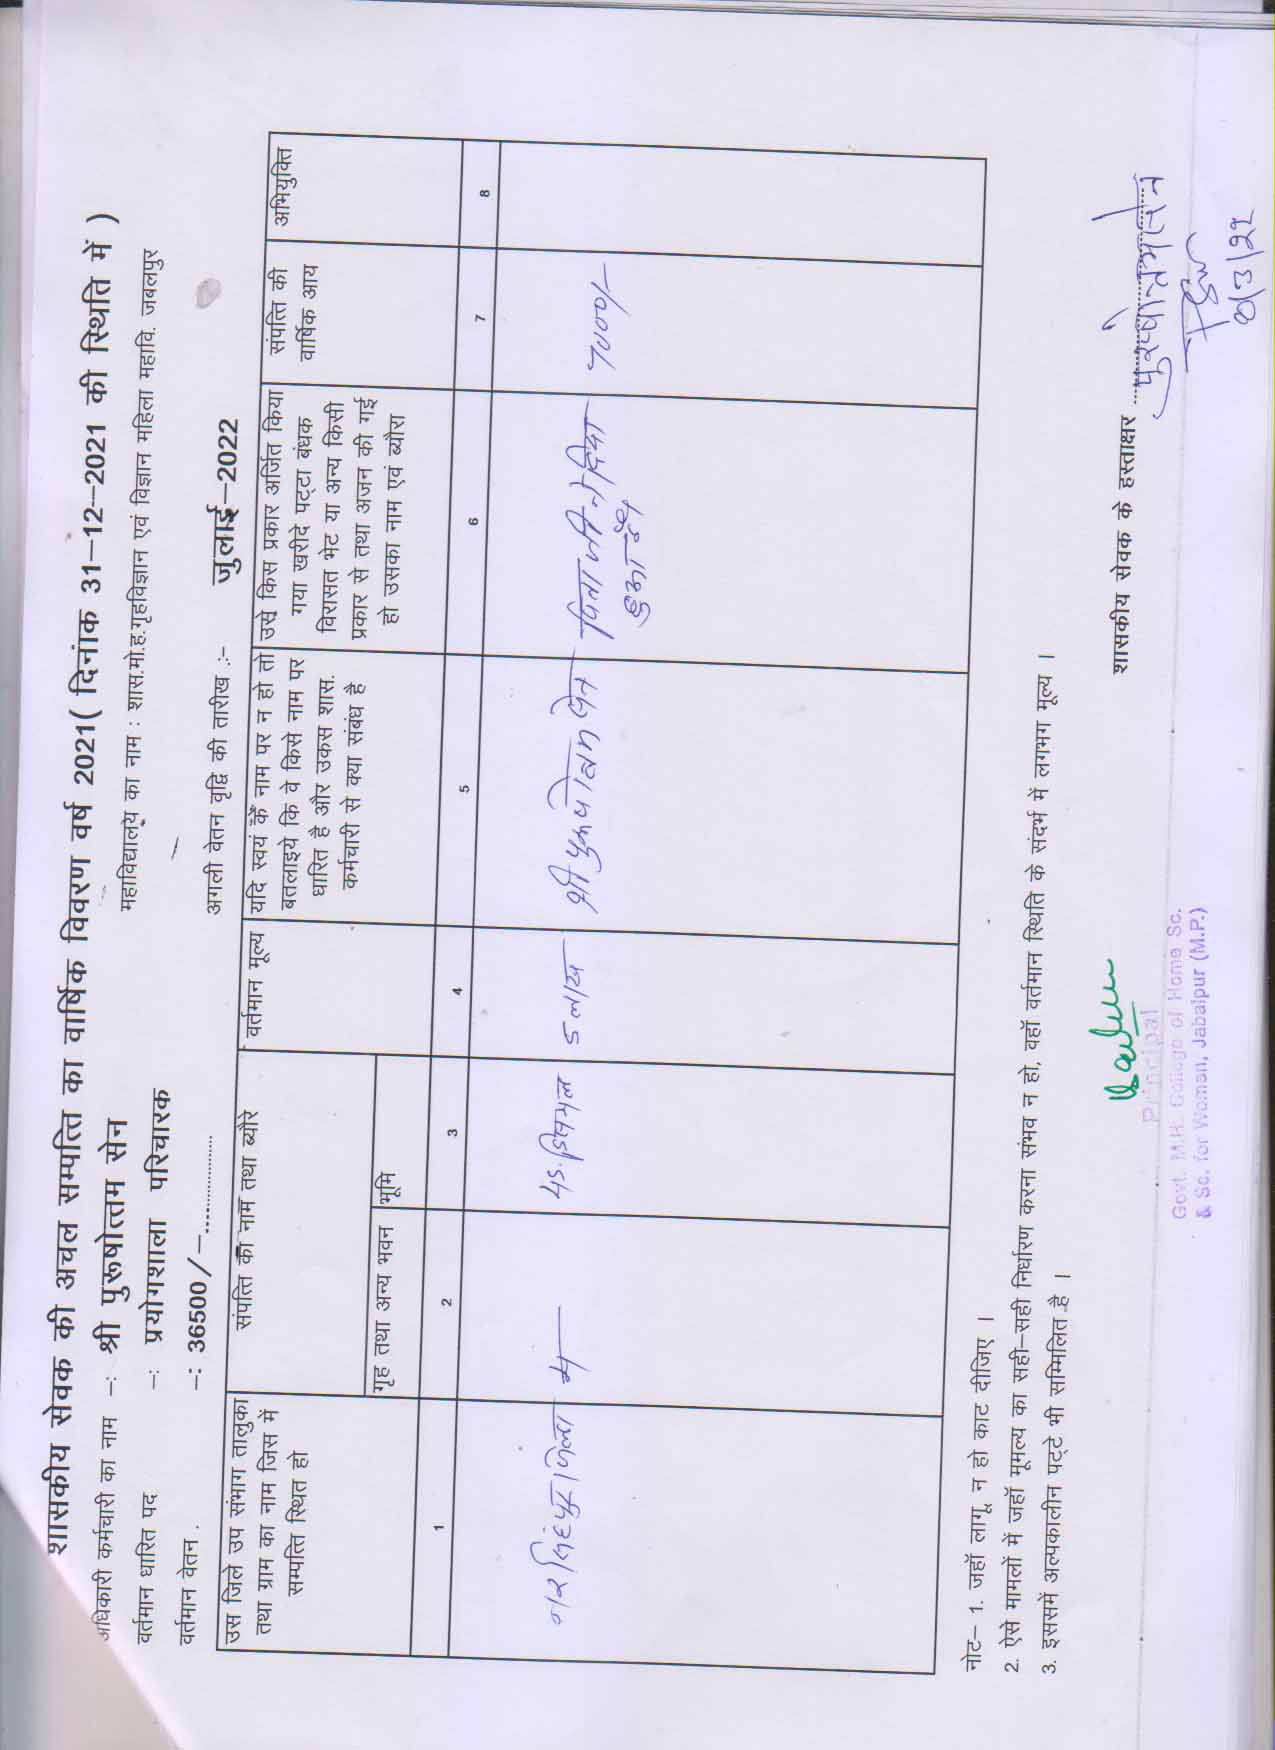 शासकीय सेवक की अचल सम्पत्ति का वार्षिक विवरण वर्ष 2021( दिनांक 31–12–2021 की स्थिति में )
अधिकारी कर्मचारी का नाम –: श्री पुरूषोत्तम सेन
महाविद्यालय का नाम : शास.मो.ह.गृहविज्ञान एवं विज्ञान महिला महावि. जबलपुर
वर्तमान धारित पद –: प्रयोगशाला परिचारक
वर्तमान वेतन . –: 36500/–
अगली वेतन वृद्दि की तारीख :– जुलाई–2022
उस जिले उप संभाग तालुका
तथा ग्राम का नाम जिस में
सम्पत्ति स्थित हो
संपत्ति का नाम तथा ब्यौरे
गृह तथा अन्य भवन
भूमि
वर्तमान मूल्य
यदि स्वयं के नाम पर न हो तो
बतलाइये कि वे किसे नाम पर
धारित है और उकस शास.
कर्मचारी से क्या संबंध है
उसे किस प्रकार अर्जित किया
गया खरीदे पट्टा बंधक
विरासत भेट या अन्य किसी
प्रकार से तथा अजन की गई
हो उसका नाम एवं ब्यौरा
संपत्ति की
वार्षिक आय
अभियुक्ति
1 2 3 4 5 6 7 8
नरसिंहपुर जिला
डिसमल
5 लाख
श्री पुरूषोत्तम सेन
पिता जी ने दिया
हुआ है
7000/–
नोट– 1. जहाँ लागू न हो काट दीजिए ।
2. ऐसे मामलों में जहाँ मूमल्य का सही–सही निर्धारण करना संभव न हो, वहाँ वर्तमान स्थिति के संदर्भ में लगभग मूल्य ।
3. इससमें अल्पकालीन पट्टे भी सम्मिलित है ।
शासकीय सेवक के हस्ताक्षर
पुरूषोत्तम सेन
8/3/22
Principal
Govt. M.H. College of Home Sc.
& Sc. for Woman, Jabalpur (M.P.)